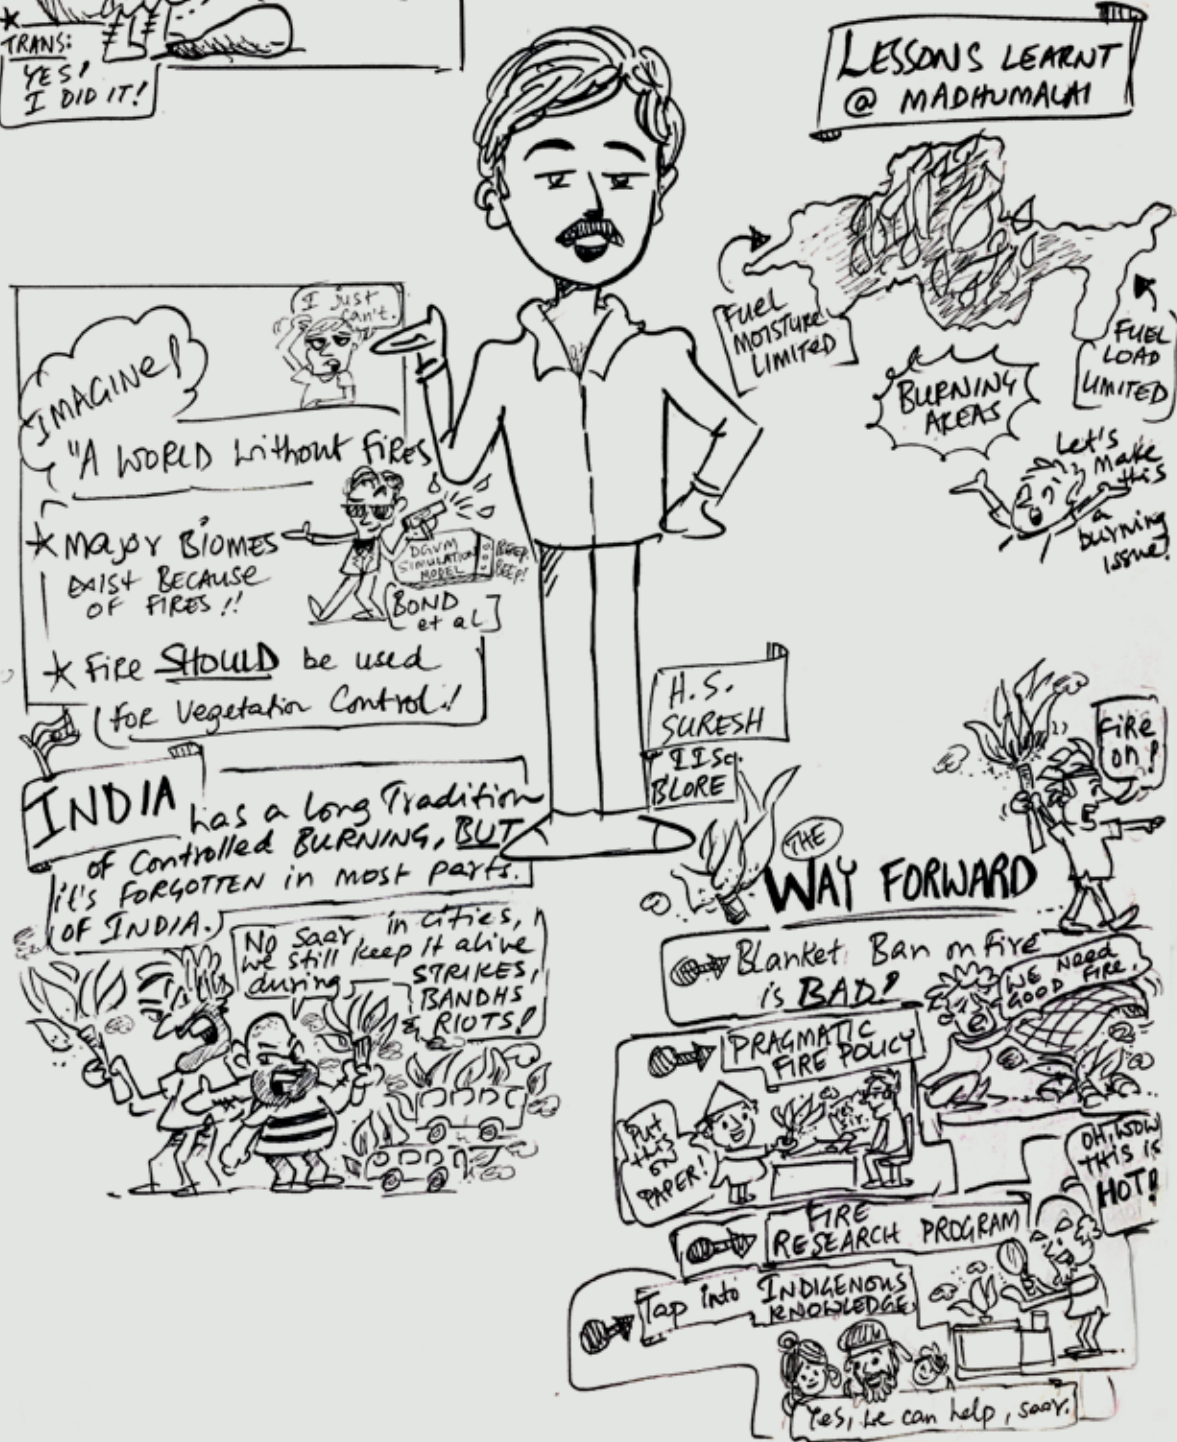 TRANS:
YES!
I DID IT!
LESSONS LEARNT
@ MADHUMALAI
FUEL
MOISTURE
LIMITED
BURNING
AREAS
FUEL
LOAD
LIMITED
Let's
make
this
a
burning
issue!
I just
can't.
IMAGINE!
"A WORLD without FIRES
MAJOR BIOMES
EXIST BECAUSE
OF FIRES!!
DGVM
SIMULATION
MODEL
BEEP
BEEP!
[BOND
et al]
FIRE SHOULD be used
for Vegetation Control!
H.S.
SURESH
IISc.
BLORE
INDIA has a long Tradition
of Controlled BURNING, BUT
it's FORGOTTEN in most parts.
OF INDIA.
No saar, in cities,
we still keep it alive
during STRIKES,
BANDHS
& RIOTS!
FIRE
ON!
THE
WAY FORWARD
Blanket Ban on fire
is BAD!
WE NEED
GOOD FIRE.
PRAGMATIC
FIRE POLICY
Put
this
ON
PAPER!
Yes
sir.
OH, WOW
THIS IS
HOT!
FIRE
RESEARCH PROGRAM
Tap into INDIGENOUS
KNOWLEDGE
Yes, we can help, saar.